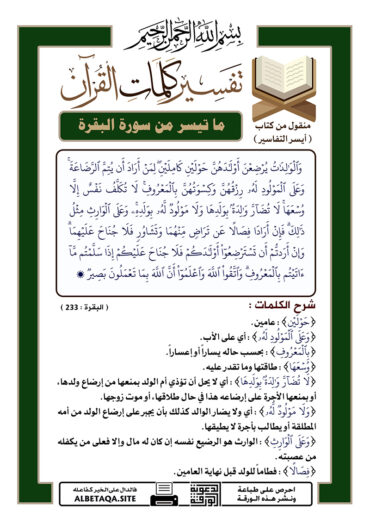 بسم الله الرحمن الرحيم
تفسير كلمات القرآن
ما تيسر من سورة البقرة
منقول من كتاب
( أيسر التفاسير )
وَٱلْوَٰلِدَٰتُ يُرْضِعْنَ أَوْلَٰدَهُنَّ حَوْلَيْنِ كَامِلَيْنِ لِمَنْ أَرَادَ أَن يُتِمَّ ٱلرَّضَاعَةَ
وَعَلَى ٱلْمَوْلُودِ لَهُۥ رِزْقُهُنَّ وَكِسْوَتُهُنَّ بِٱلْمَعْرُوفِ لَا تُكَلَّفُ نَفْسٌ إِلَّا
وُسْعَهَا لَا تُضَآرَّ وَٰلِدَةٌۢ بِوَلَدِهَا وَلَا مَوْلُودٌ لَّهُۥ بِوَلَدِهِۦ وَعَلَى ٱلْوَارِثِ مِثْلُ
ذَٰلِكَ فَإِنْ أَرَادَا فِصَالًا عَن تَرَاضٍ مِّنْهُمَا وَتَشَاوُرٍ فَلَا جُنَاحَ عَلَيْهِمَا
وَإِنْ أَرَدتُّمْ أَن تَسْتَرْضِعُوٓا۟ أَوْلَٰدَكُمْ فَلَا جُنَاحَ عَلَيْكُمْ إِذَا سَلَّمْتُم مَّآ
ءَاتَيْتُم بِٱلْمَعْرُوفِ وَٱتَّقُوا۟ ٱللَّهَ وَٱعْلَمُوٓا۟ أَنَّ ٱللَّهَ بِمَا تَعْمَلُونَ بَصِيرٌ
شرح الكلمات : ( البقرة : 233 )
﴿حَوْلَيْنِ﴾ : عامين.
﴿وَعَلَى ٱلْمَوْلُودِ لَهُۥ﴾ : أي على الأب.
﴿بِٱلْمَعْرُوفِ﴾ : بحسب حاله يساراً أو إعساراً.
﴿وُسْعَهَا﴾ : طاقتها وما تقدر عليه.
﴿لَا تُضَآرَّ وَٰلِدَةٌۢ بِوَلَدِهَا﴾ : أي لا يحل أن تؤذي أم الولد بمنعها من إرضاع ولدها،
أو بمنعها الأجرة على إرضاعه هذا في حال طلاقها، أو موت زوجها.
﴿وَلَا مَوْلُودٌ لَّهُۥ﴾ : أي ولا يضار الوالد كذلك بأن يجبر على إرضاع الولد من أمه
المطلقة أو يطالب بأجرة لا يطيقها.
﴿وَعَلَى ٱلْوَارِثِ﴾ : الوارث هو الرضيع نفسه إن كان له مال وإلا فعلى من يكفله
من عصبته.
﴿فِصَالًا﴾ : فطاماً للولد قبل نهاية العامين.
احرص على طباعة
ونشر هذه الورقة
الدعوية
الورقة
فالدال على الخير كفاعله
ALBETAQA.SITE